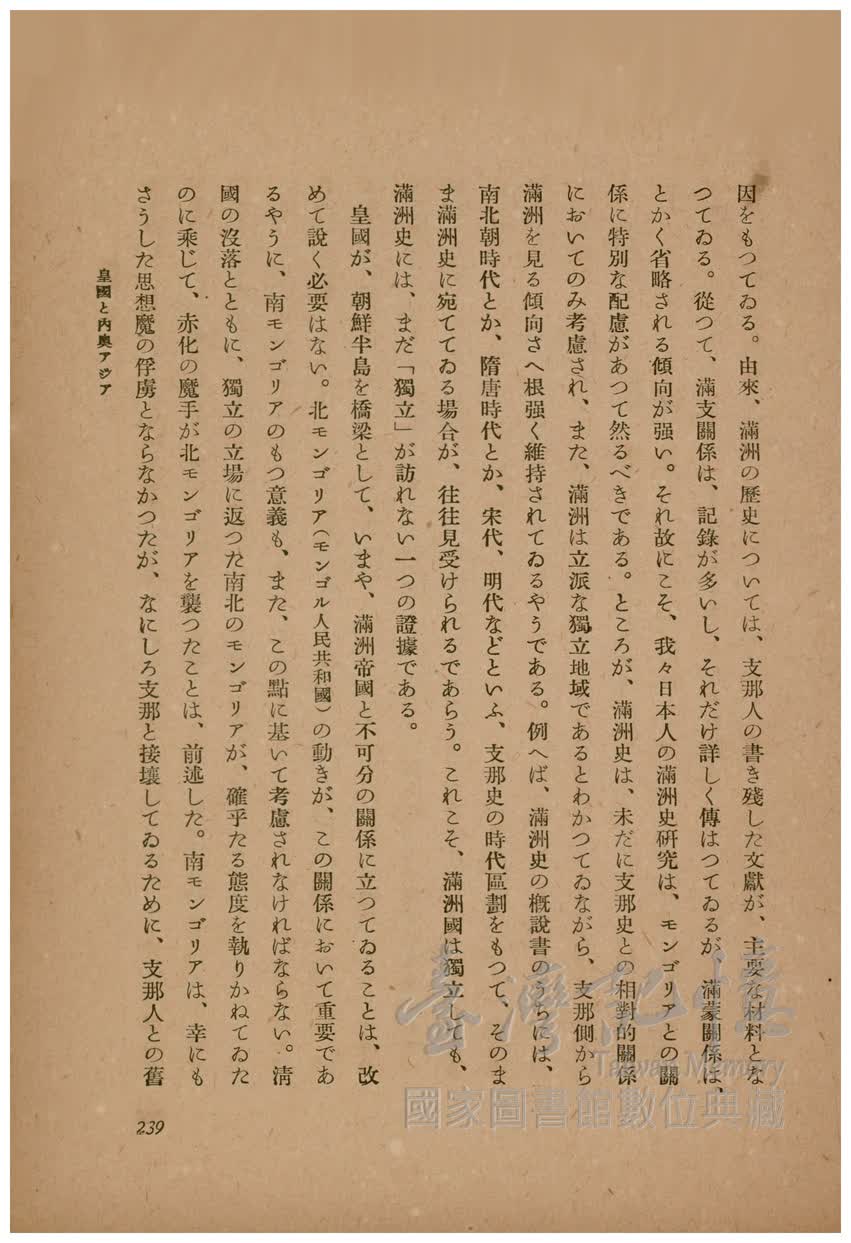 因をもつてゐる。由來、滿洲の歷史については、支那人の書き殘した文獻が、主要な材料とな
つてゐる。從つて、滿支關係は、記錄が多いし、それだけ詳しく傳はつてゐるが、滿蒙關係は、
とかく省略される傾向が强い。それ故にこそ、我々日本人の滿洲史硏究は、モンゴリアとの關
係に特別な配慮があつて然るべきである。ところが、滿洲史は、未だに支那史との相對的關係
においてのみ考慮され、また、滿洲は立派な獨立地域であるとわかつてゐながら、支那側から
滿洲を見る傾向さへ根强く維持されてゐるやうである。例へば、滿洲史の槪說書のうちには、
南北朝時代とか、隋唐時代とか、宋代、明代などといふ、支那史の時代區劃をもつて、そのま
ま滿洲史に宛ててゐる場合が、往往見受けられるであらう。これこそ、滿洲國は獨立しても、
滿洲史には、まだ「獨立」が訪れない一つの證據である。
皇國が、朝鮮半島を橋梁として、いまや、滿洲帝國と不可分の關係に立つてゐることは、改
めて說く必要はない。北モンゴリア(モンゴル人民共和國)の動きが、この關係において重要であ
るやうに、南モンゴリアのもつ意義も、また、この點に基いて考慮されなければならない。淸
國の沒落とともに、獨立の立場に返つた南北のモンゴリアが、確乎たる態度を執りかねてゐた
のに乘じて、赤化の魔手が北モンゴリアを襲つたことは、前述した。南モンゴリアは、幸にも
さうした思想魔の俘虜とならなかつたが、なにしろ支那と接壤してゐるために、支那人との舊
皇國と內奧アジア
239
臺灣記憶
Taiwan Memory
國家圖書館數位典藏